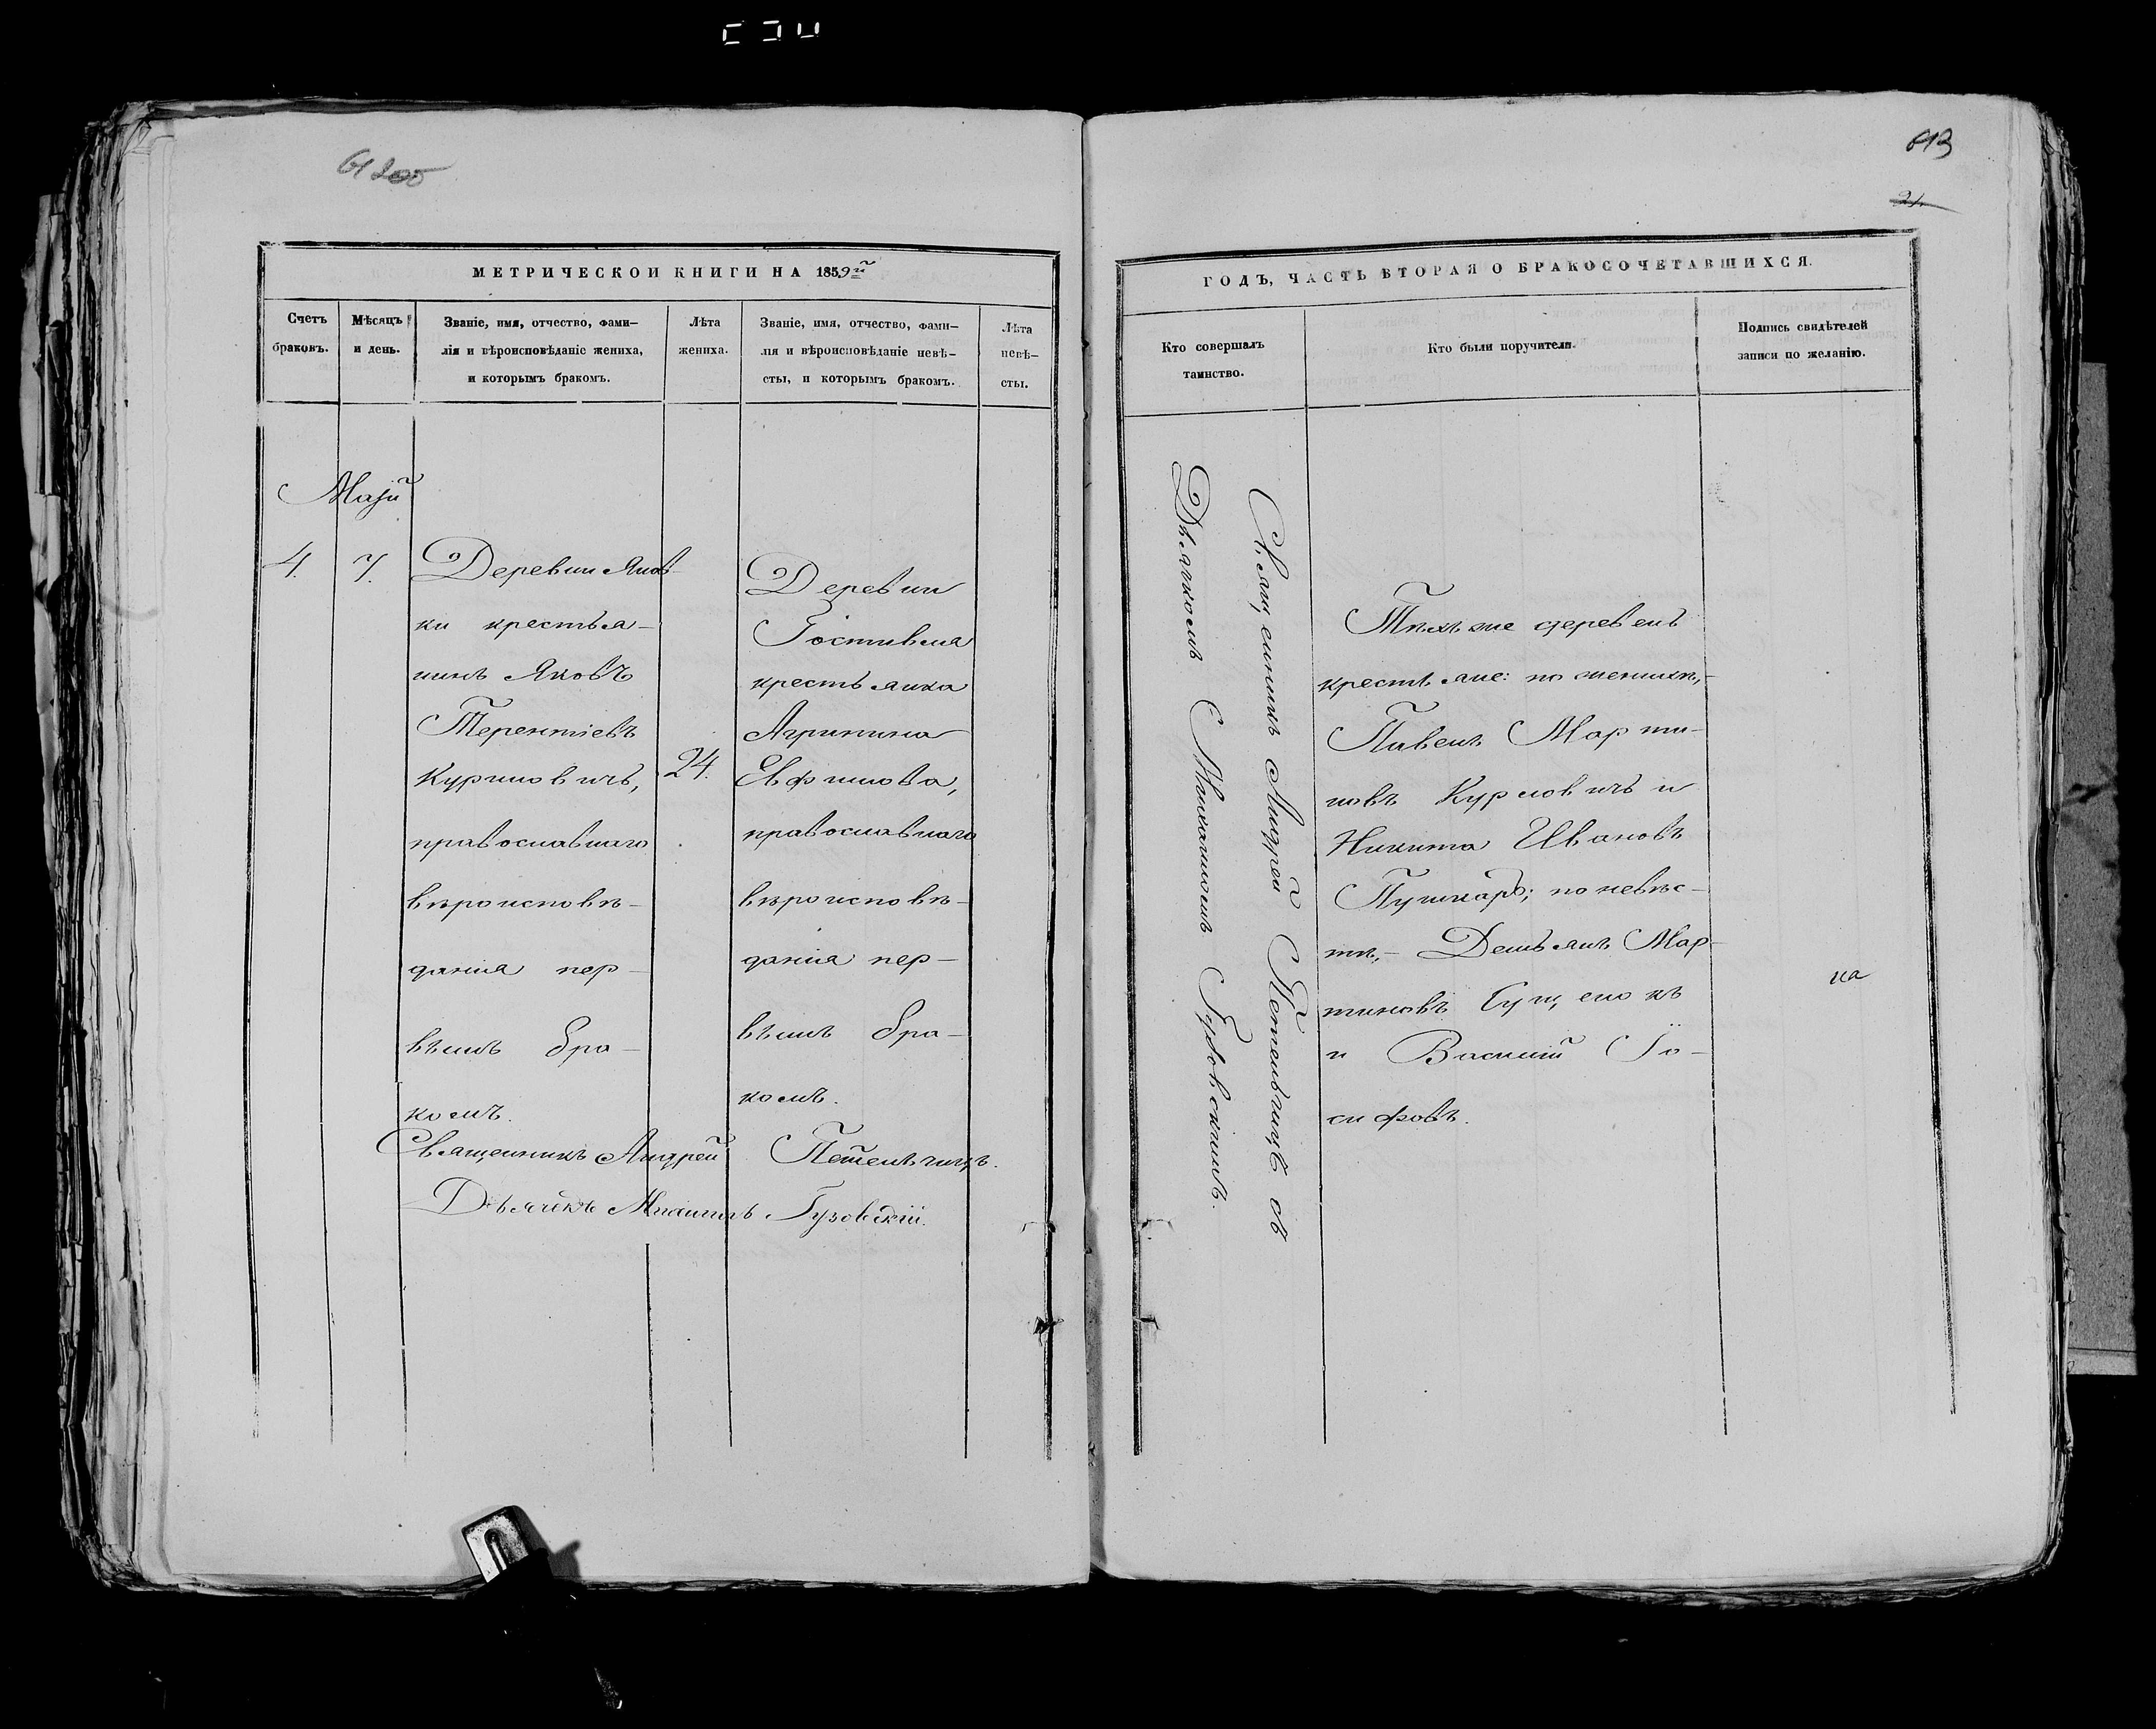 613
21.
МЕТРИЧЕСКОЙ КНИГИ НА 1859й
Счетъ браковъ.
Мѣсяцъ и день.
Званіе, имя, отчество, фами-
лія и вѣроисповѣданіе жениха,
и которымъ бракомъ.
Лѣта
жениха.
Званіе, имя, отчество, фами-
лія и вѣроисповѣданіе невѣ-
сты, и которымъ бракомъ.
Лѣта
невѣ-
сты.
Маій
4.
7.
Деревни Янов-
ки крестья-
нинъ Яковъ
Терентіевъ
Куриловичъ,
православнаго
вѣроисповѣ-
данія пер-
вымъ бра-
комъ.
24.
Деревни
Гостивля
крестьянка
Агрипина
Евфимова,
православнаго
вѣроисповѣ-
данія пер-
вымъ бра-
комъ.
Священникъ Андрей
Дьячекъ Михаилъ Гузовскій.
ГОДЪ, ЧАСТЬ ВТОРАЯ О БРАКОСОЧЕТАВШИХСЯ.
Кто совершалъ
таинство.
Кто были поручители.
Подпись свидѣтелей
записи по желанію.
Священникъ Андрей съ
Дьячкомъ Михаиломъ Гузовскимъ.
Тѣхъ же деревень
крестьяне: по женихѣ,-
Павелъ Марти-
новъ Куриловичъ и
Никита Ивановъ
Пушкарь; по невѣс-
тѣ,- Демьянъ Мар-
тиновъ
и Василій Іо-
сифовъ.
на